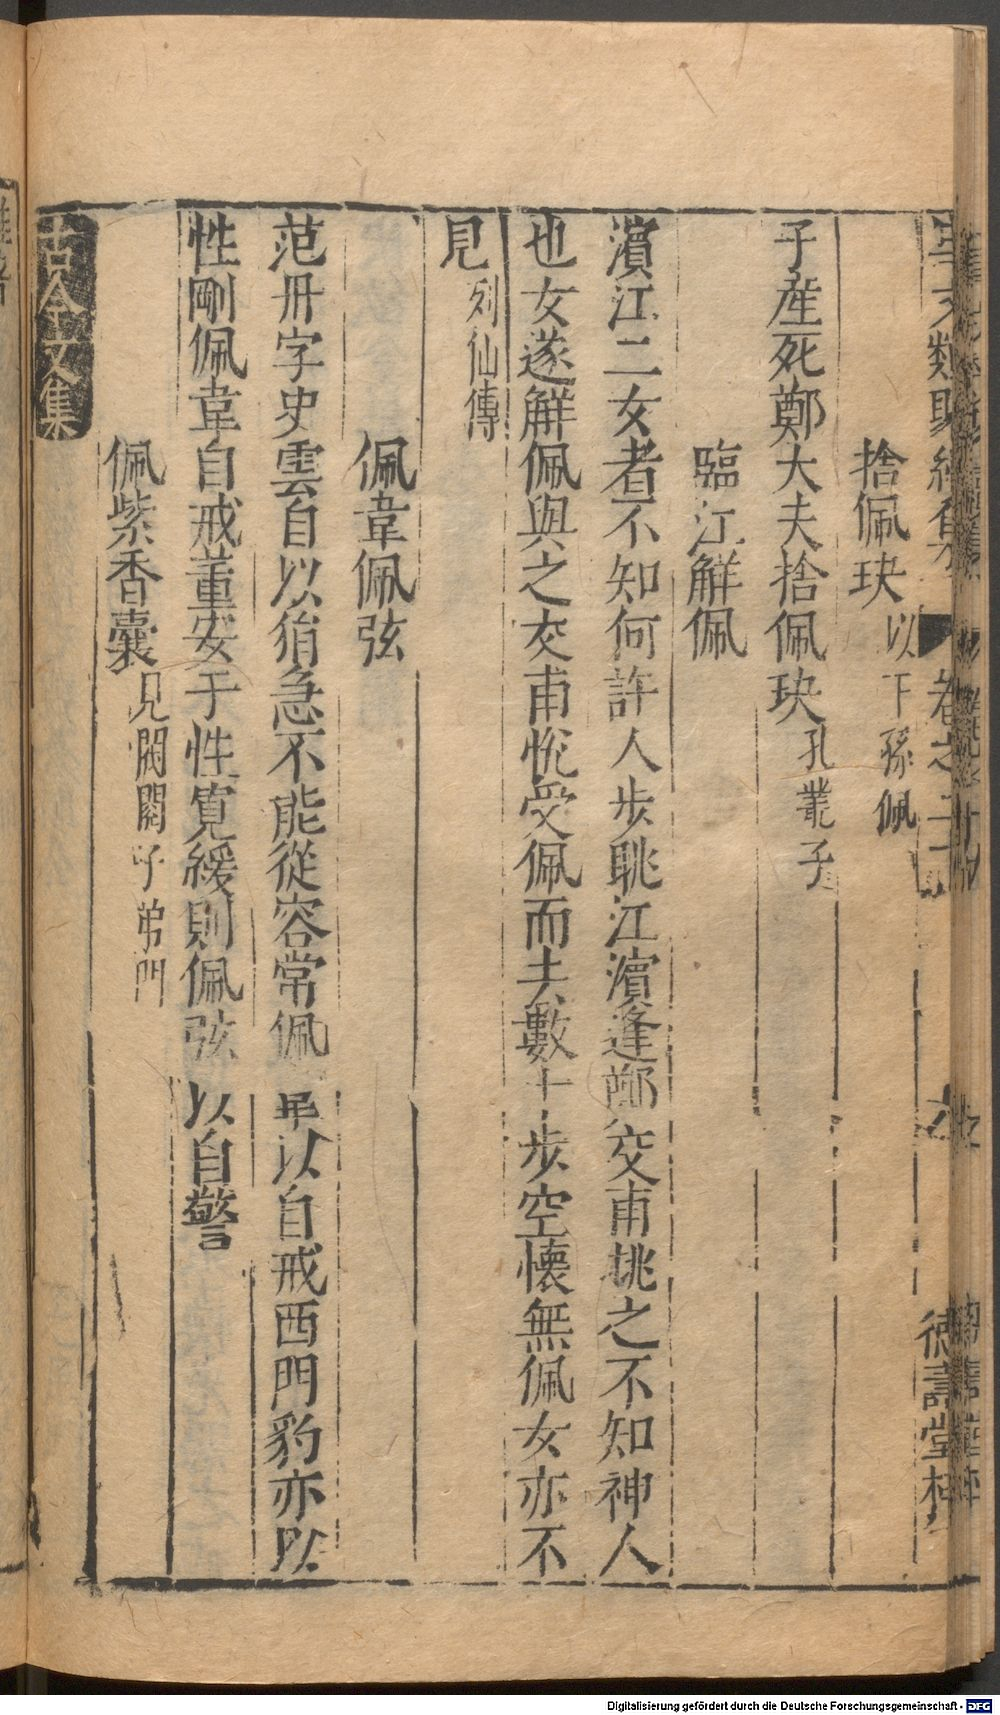 捨佩玦以下孫佩
子產死鄭大夫捨佩玦孔叢子
臨江解佩
濵江二女者不知何許人步眺江濵逢鄭交甫挑之不知神人
也女遂解佩與之交甫悅受佩而去數十步空懷無佩女亦不
見列仙傳
佩韋佩弦
范冊字史雲自以狷急不能從容常佩韋以自戒西門豹亦以
性剛佩韋自戒董安于性寬緩則佩弦以自警
佩紫香囊見閥閱子弟門
古今文集
卷之二十
德壽堂梓
Digitalisierung gefördert durch die Deutsche Forschungsgemeinschaft - DFG